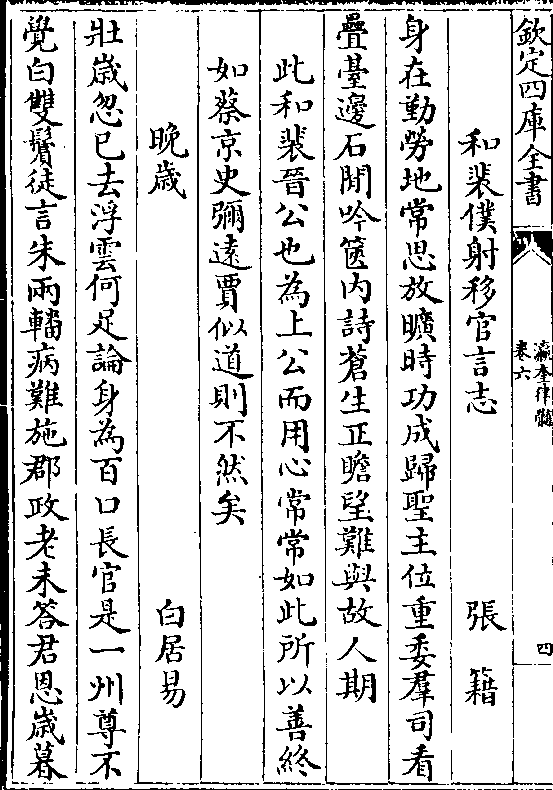 欽定四庫全書
瀛奎律髓
卷六
四
和裴僕射移官言志　張籍
身在勤勞地常思放曠時功成歸聖主位重委羣司看
疊臺邊石閒吟篋內詩蒼生正瞻望難與故人期
此和裴晉公也為上公而用心常常如此所以善終
如蔡京史彌遠賈似道則不然矣
晚歲　白居易
壯歲忽已去浮雲何足論身為百口長官是一州尊不
覺白雙鬢徒言朱兩轓病難施郡政老未答君恩歲暮